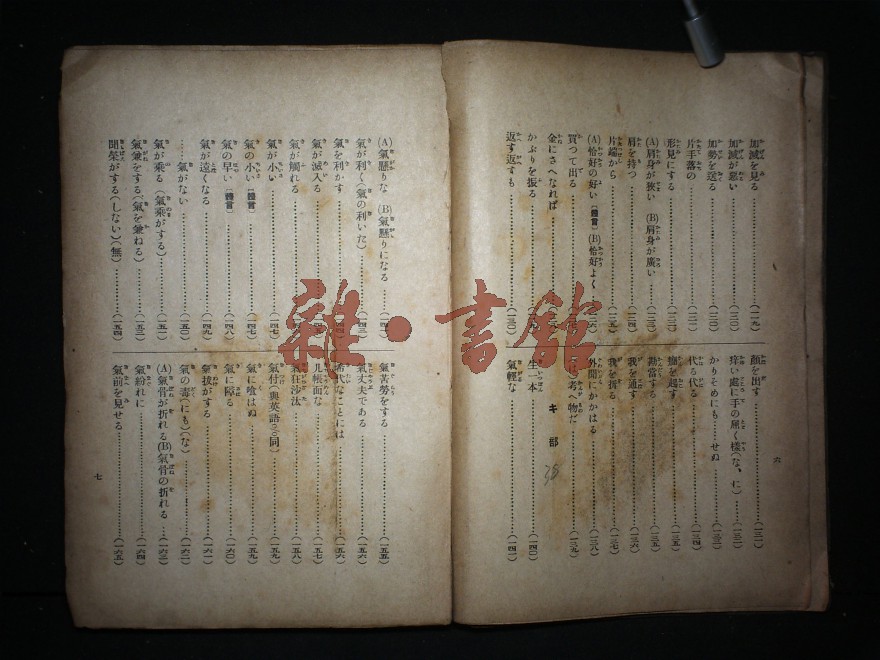 加減を見る……(一二九)
加減が悪い……(一三〇)
加勢を送る……(一三〇)
片手落の
形見にする
(A)肩身が狹い (B)肩身が廣い
肩を持つ
片端から
(A)恰好の好い〔體言〕(B)恰好よく
買つて出る
金にさへなれば
かぶりを振る
返す返すも
顏を出す……(一三一)
痒い處に手の屆く樣(な、に)
かりそめにも…せぬ
代る代る……(一三四)
癪を起す……(一三五)
勘當する……(一三五)
我を通す……(一三六)
我を折る……(一三七)
外聞にかかはる……(一三八)
考へ物だ……(一三九)
キ部
38
生一本……(一四〇)
氣輕な……(一四一)
六
(A)氣懸りな (B)氣懸りになる
氣が利く(氣の利いた)
氣を利かす
氣が滅入る
氣が觸れる
氣が小い……(一四七)
氣の小い〔體言〕……(一四七)
氣の早い〔體言〕……(一四八)
氣が遠くなる……(一四九)
…氣がない……(一五〇)
氣が乘る(氣乘がする)……(一五一)
氣兼をする(氣を兼ねる)……(一五三)
聞榮がする(しない)(無)……(一五四)
氣苦勞をする……(一五五)
氣丈夫である……(一五六)
稀代なことには……(一五六)
几帳面な……(一五七)
氣狂沙汰……(一五八)
氣付(與英語の同)……(一五九)
氣に喰はぬ……(一五九)
氣に障る……(一六〇)
氣拔がする……(一六一)
氣の毒(にも)(な)……(一六二)
(A)氣骨が折れる(B)氣骨の折れる……(一六三)
氣紛れに……(一六四)
氣前を見せる……(一六五)
七
雜·書館